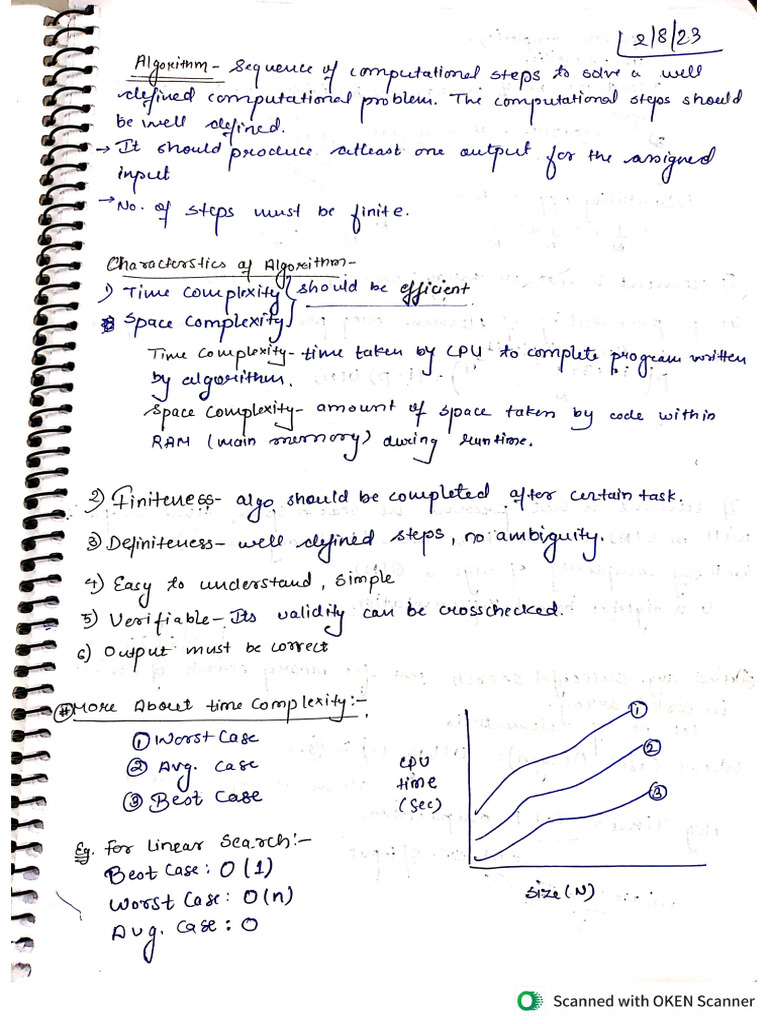 2/8/23
Algorithm - Sequence of computational steps to solve a well
defined computational problem. The computational steps should
be well defined.
→ It should produce atleast one output for the assigned
input
→ No. of steps must be finite.
Characterstics of Algorithm-
1) Time complexity } should be efficient
Space Complexity
Time Complexity - time taken by CPU to complete program written
by algorithm.
Space Complexity - amount of space taken by code within
RAM (main memory) during runtime.
2) Finiteness - algo should be completed after certain task.
3) Definiteness - well defined steps, no ambiguity.
4) Easy to understand, simple
5) Verifiable - Its validity can be crosschecked.
6) Output must be correct
# More About time Complexity:-
① Worst Case
② Avg. Case
③ Best Case
CPU
time
(Sec)
①
②
③
Size (N)
Eg. For Linear Search:-
Best Case: O(1)
Worst Case: O(n)
Avg. Case: O
Scanned with OKEN Scanner